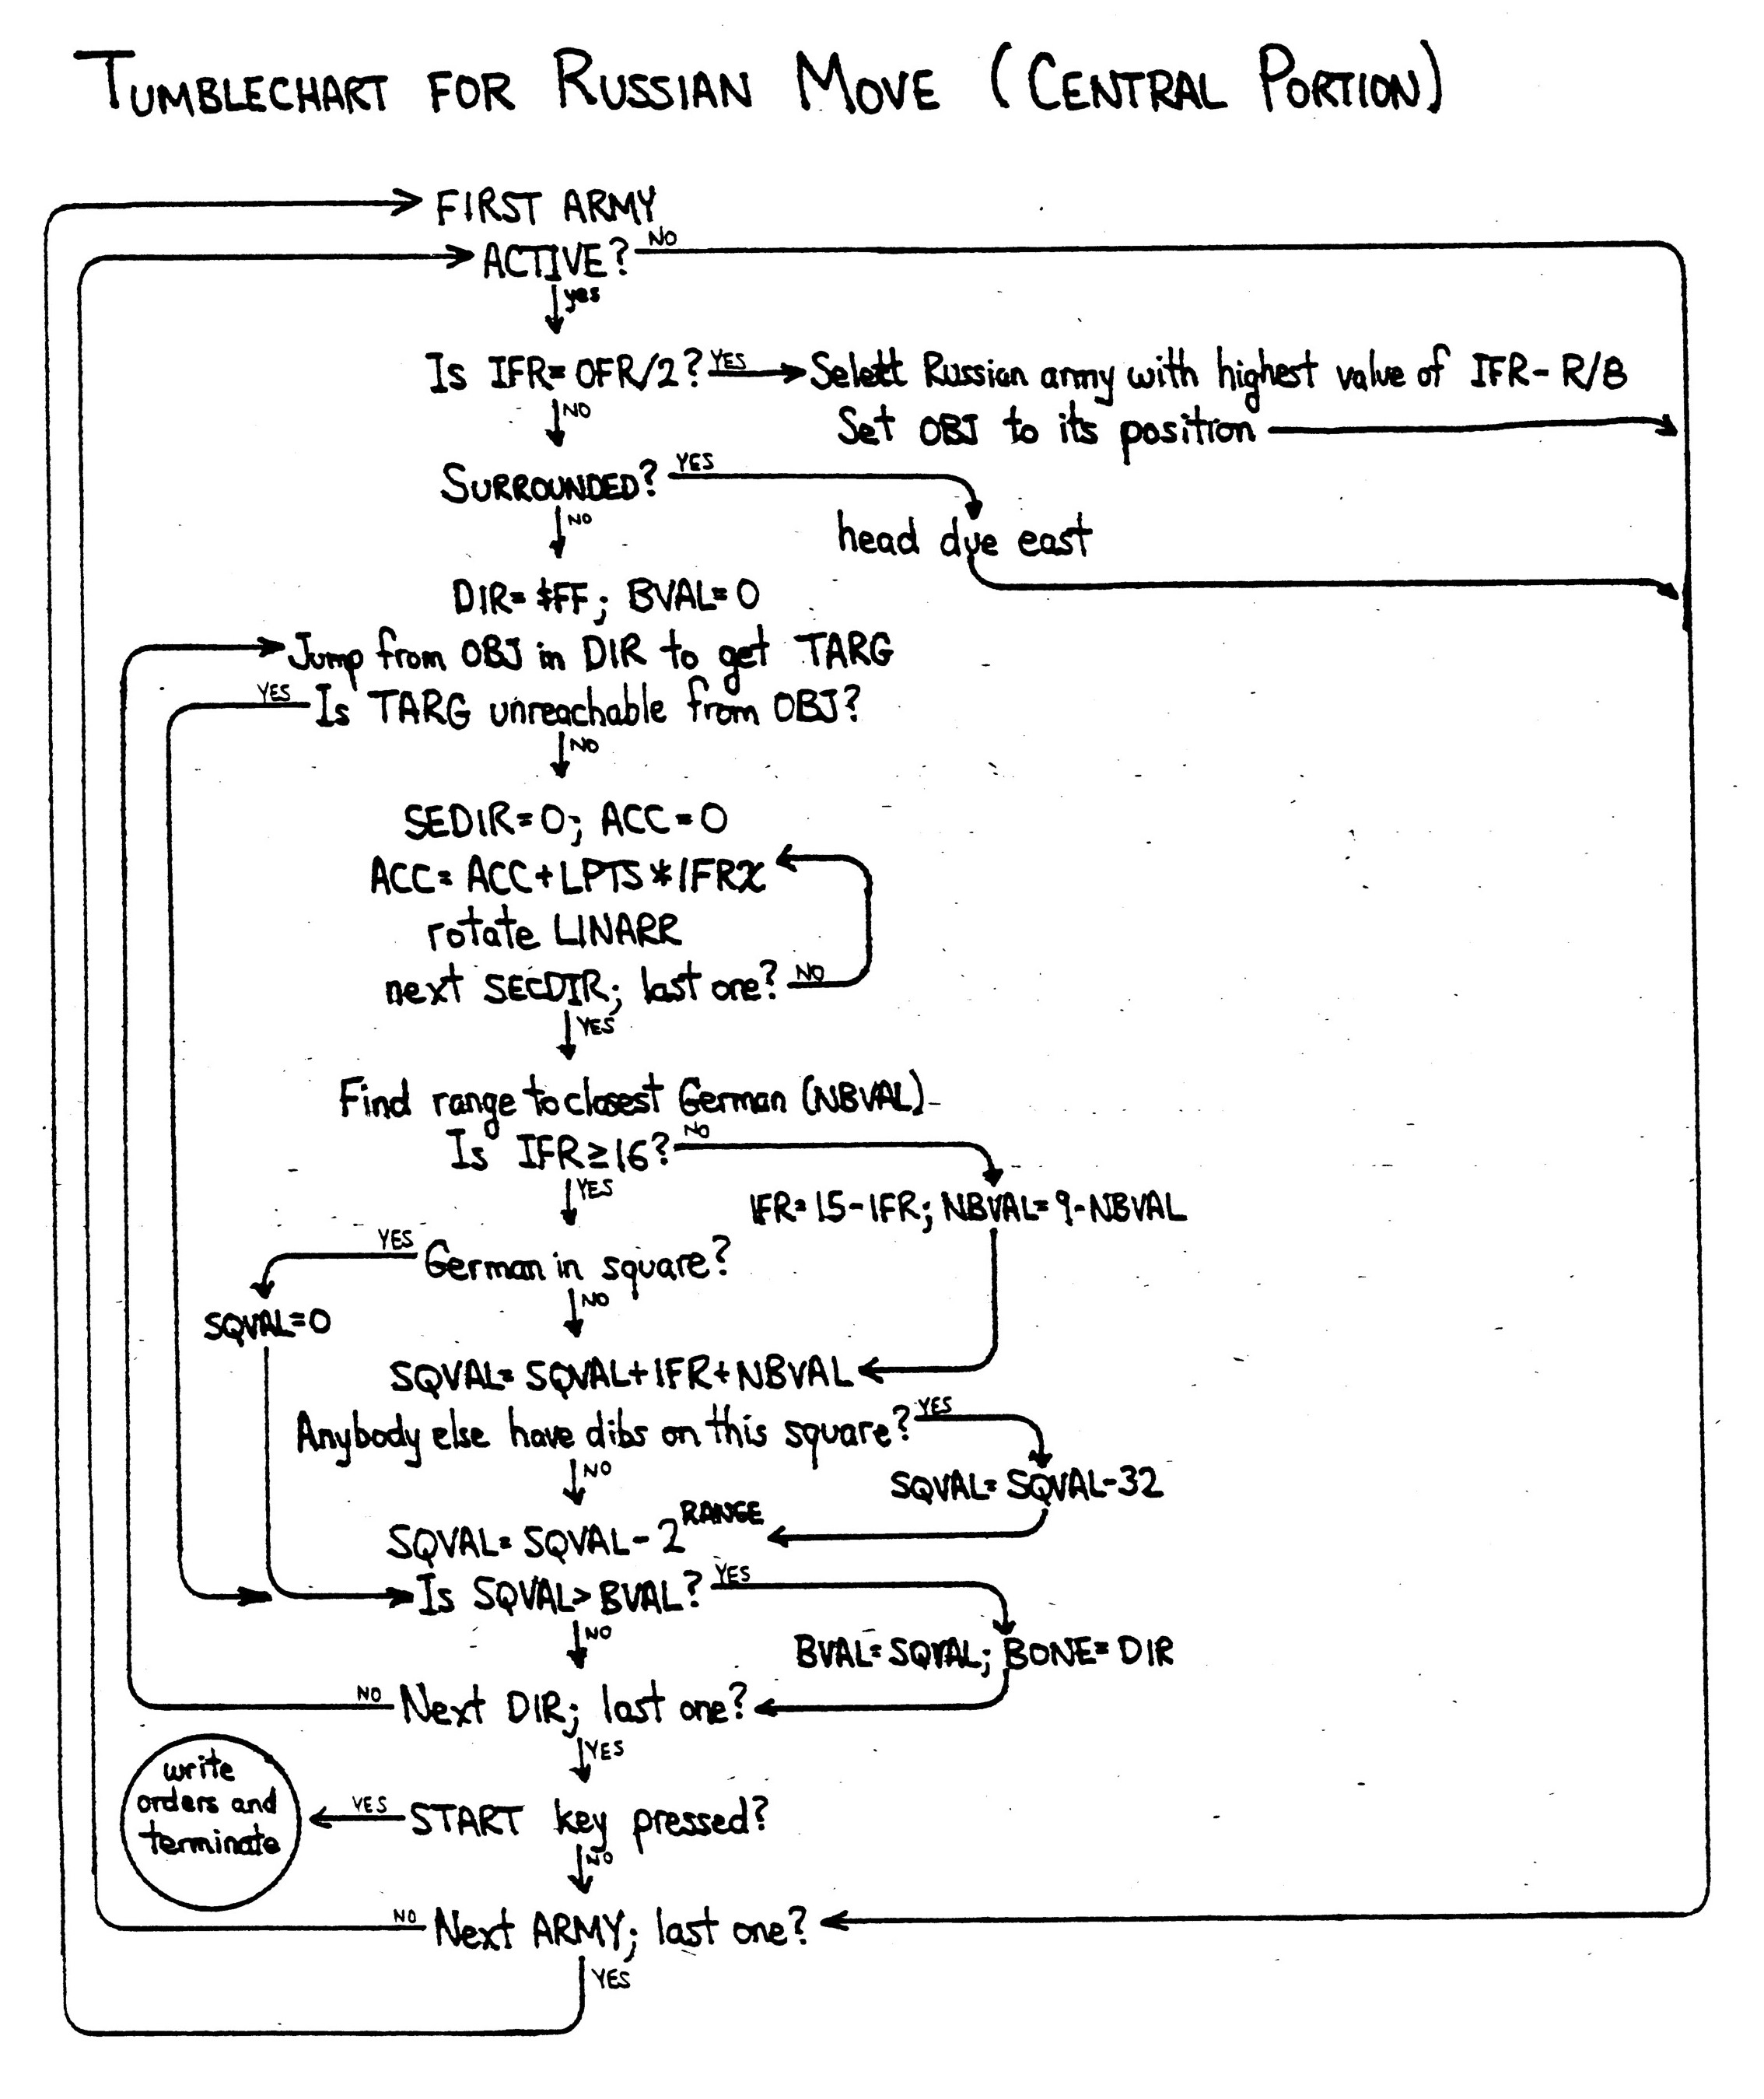 TUMBLECHART FOR RUSSIAN MOVE (CENTRAL PORTION)
FIRST ARMY
ACTIVE? NO
yes
Is IFR=OFR/2? YES Select Russian army with highest value of IFR-R/8
NO Set OBJ to its position
SURROUNDED? YES
NO
head due east
DIR=$FF; BVAL=0
Jump from OBJ in DIR to get TARG
YES Is TARG unreachable from OBJ?
NO
SEDIR=0; ACC=0
ACC=ACC+LPTS*IFRX
rotate LINARR
next SECDIR; last one? NO
YES
Find range to closest German (NBVAL)
Is IFR≥16? NO
YES
IFR=15-IFR; NBVAL=9-NBVAL
YES German in square?
NO
SQVAL=0
SQVAL=SQVAL+IFR+NBVAL
Anybody else have dibs on this square? YES
NO
SQVAL=SQVAL-32
SQVAL=SQVAL-2^RANGE
Is SQVAL>BVAL? YES
NO
BVAL=SQVAL; BONE=DIR
NO Next DIR; last one?
YES
write
orders and
terminate
YES START key pressed?
NO
NO Next ARMY; last one?
YES